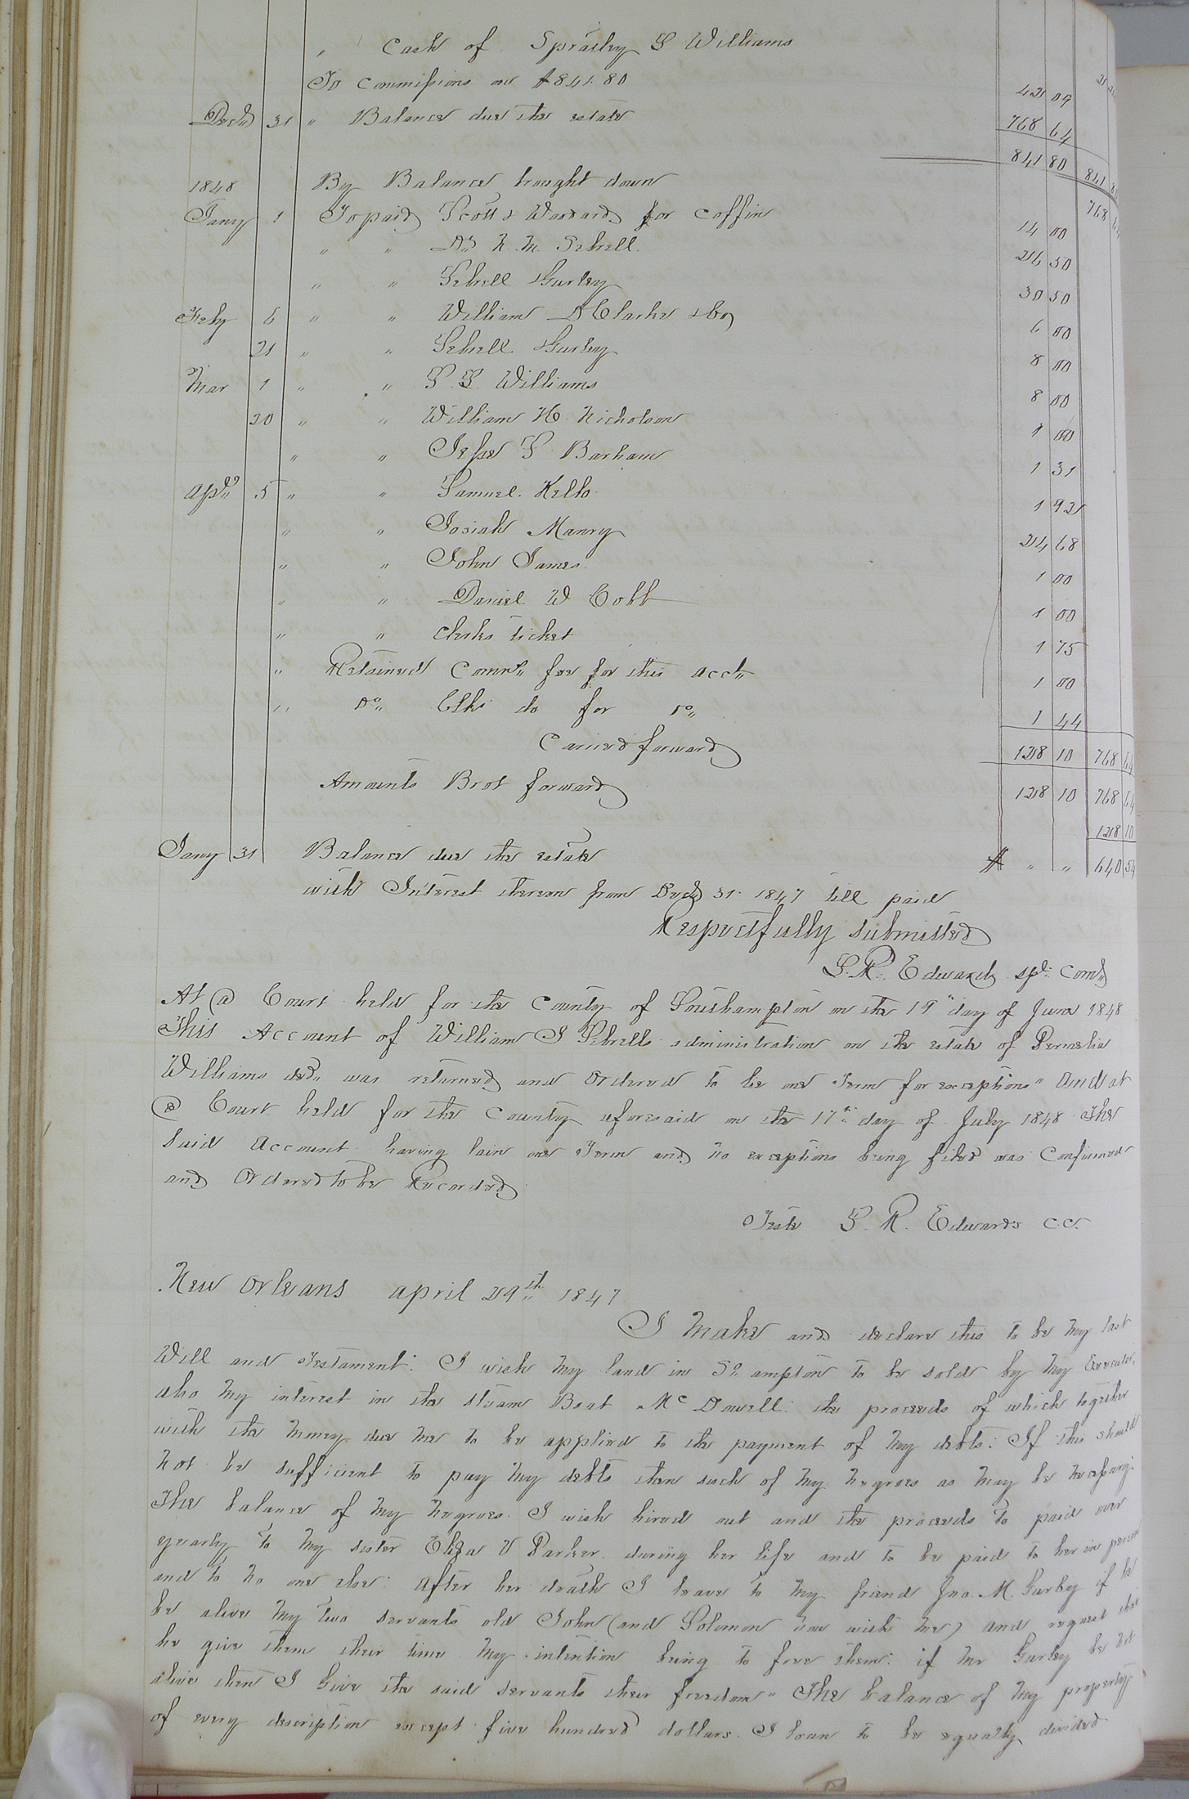 " Cash of Spratley S Williams
To Commissions on $841.80 42 09
Decr 31 " Balance due the estate 768 64
841 80 841
1848 By Balance brought down 768
Jany 1 To paid Scott & Woodard for coffin 14 00
" " Dr N. M. Sebrell 26 50
" " Sebrell Gurley 30 50
Feby 6 " " William D Clarke & Co 6 00
21 " " Sebrell Gurley 8 00
Mar 1 " " S. S. Williams 8 00
20 " " William H. Nicholson 1 00
" " Jesse S Barham 1 31
Apl 5 " " Samuel Kello 1 92
" " Josiah Manry 24 68
" " John James 1 00
" " Daniel W Cobb 1 00
" " Clerks ticket 1 75
" Retained Commrs fee for this acct 1 00
" Do Clks do for Do 1 44
Carried forward 128 10 768 64
Amounts Brot forward 128 10 768 64
128 10
Jany 31 Balance due the estate $ " " 640 54
with Interest thereon from Decr 31st 1847 till paid
Respectfully submitted
L. R. Edwards spl Comr
At a Court held for the County of Southampton on the 19th day of June 1848
This Account of William J Sebrells administration on the estate of Permelia
Williams decd was returned and Ordered to lie one Term for exceptions" And at
a Court held for the County aforesaid on the 17th day of July 1848 The
Said Account having lain one Term and no exceptions being filed was Confirmed
and Ordered to be Recorded
Teste L. R. Edwards C.C.
New Orleans april 29th 1847
I Make and declare this to be My last
Will and Testament: I wish My land in So ampton to be sold by My Executor,
also My interest in the Steam Boat McDowell: the proceeds of which together
with the Money due me to be applied to the payment of My debts: If this should
Not be sufficient to pay My debts then such of My Negroes as may be Necessary.
The balance of My Negroes I wish hired out and the proceeds to paid over
yearly to My sister Eliza V Parker during her life and to be paid to her in person
and to No one else: After her death I leave to My friend Jno. M. Gurley if he
be alive My two servants old John (and Solomon now with me) and request that
he give them their time My intention being to free them: if Mr Gurley be not
alive then I Give the said servants their freedom" The balance of My property
of every description except five hundred dollars I loan to be equally divided